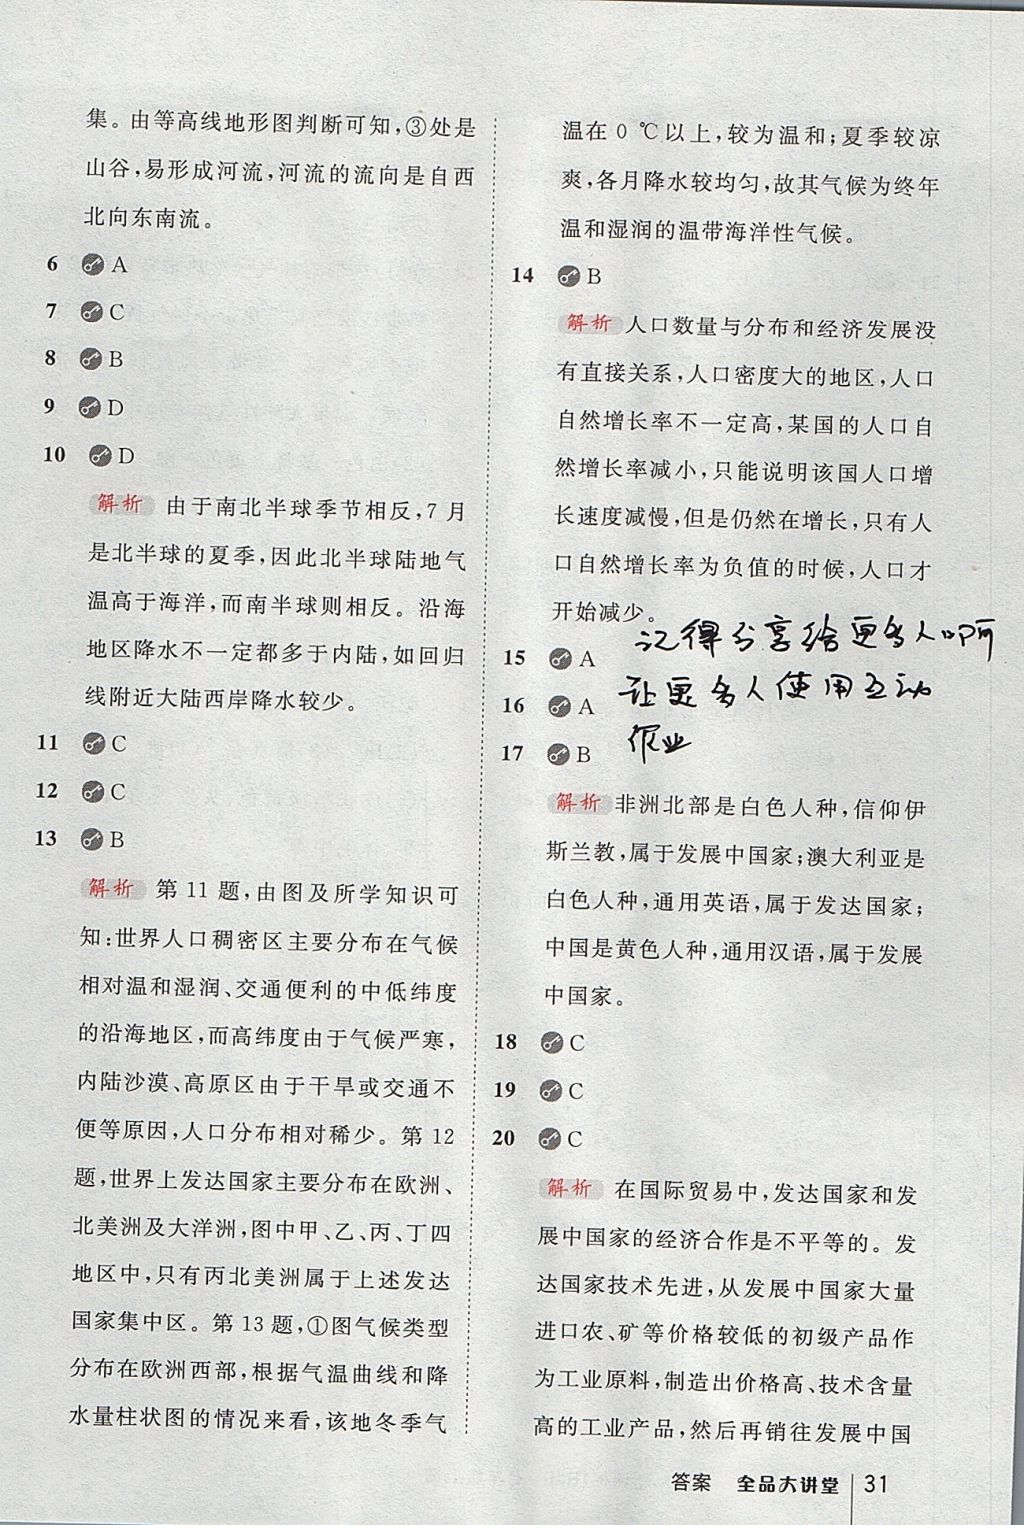 集。由等高线地形图判断可知,③处是
山谷,易形成河流,河流的流向是自西
北向东南流。
6 A
7 C
8 B
9 D
10 D
解析 由于南北半球季节相反,7月
是北半球的夏季,因此北半球陆地气
温高于海洋,而南半球则相反。沿海
地区降水不一定都多于内陆,如回归
线附近大陆西岸降水较少。
11 C
12 C
13 B
解析 第11题,由图及所学知识可
知:世界人口稠密区主要分布在气候
相对温和湿润、交通便利的中低纬度
的沿海地区,而高纬度由于气候严寒,
内陆沙漠、高原区由于干旱或交通不
便等原因,人口分布相对稀少。第12
题,世界上发达国家主要分布在欧洲、
北美洲及大洋洲,图中甲、乙、丙、丁四
地区中,只有丙北美洲属于上述发达
国家集中区。第13题,①图气候类型
分布在欧洲西部,根据气温曲线和降
水量柱状图的情况来看,该地冬季气
温在0 ℃以上,较为温和;夏季较凉
爽,各月降水较均匀,故其气候为终年
温和湿润的温带海洋性气候。
14 B
解析 人口数量与分布和经济发展没
有直接关系,人口密度大的地区,人口
自然增长率不一定高,某国的人口自
然增长率减小,只能说明该国人口增
长速度减慢,但是仍然在增长,只有人
口自然增长率为负值的时候,人口才
开始减少。
记得分享给更多人口阿
让更多人使用互动
作业
15 A
16 A
17 B
解析 非洲北部是白色人种,信仰伊
斯兰教,属于发展中国家;澳大利亚是
白色人种,通用英语,属于发达国家;
中国是黄色人种,通用汉语,属于发展
中国家。
18 C
19 C
20 C
解析 在国际贸易中,发达国家和发
展中国家的经济合作是不平等的。发
达国家技术先进,从发展中国家大量
进口农、矿等价格较低的初级产品作
为工业原料,制造出价格高、技术含量
高的工业产品,然后再销往发展中国
答案 全品大讲堂 31